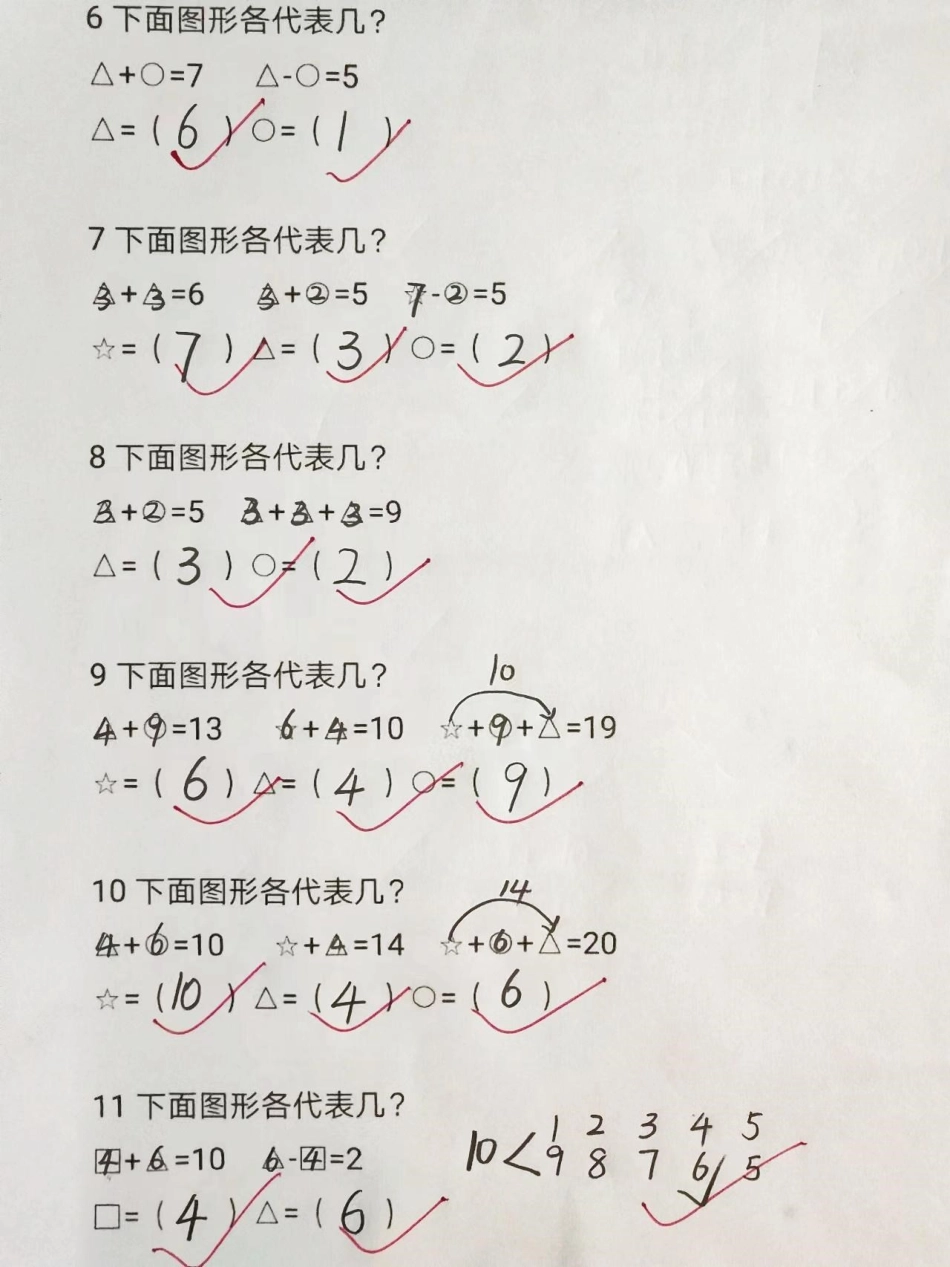 6 下面图形各代表几？
△+○=7 △-○=5
△=（6） ○=（1）
7 下面图形各代表几？
3+3=6 3+②=5 7-②=5
☆=（7） △=（3） ○=（2）
8 下面图形各代表几？
3+②=5 3+3+3=9
△=（3） ○=（2）
9 下面图形各代表几？
10
4+9=13 6+4=10 ☆+9+△=19
☆=（6） △=（4） ○=（9）
10 下面图形各代表几？
14
4+6=10 ☆+4=14 ☆+6+△=20
☆=（10） △=（4） ○=（6）
11 下面图形各代表几？
1 2 3 4 5
4+6=10 6-4=2 10<
9 8 7 6 5
□=（4） △=（6）